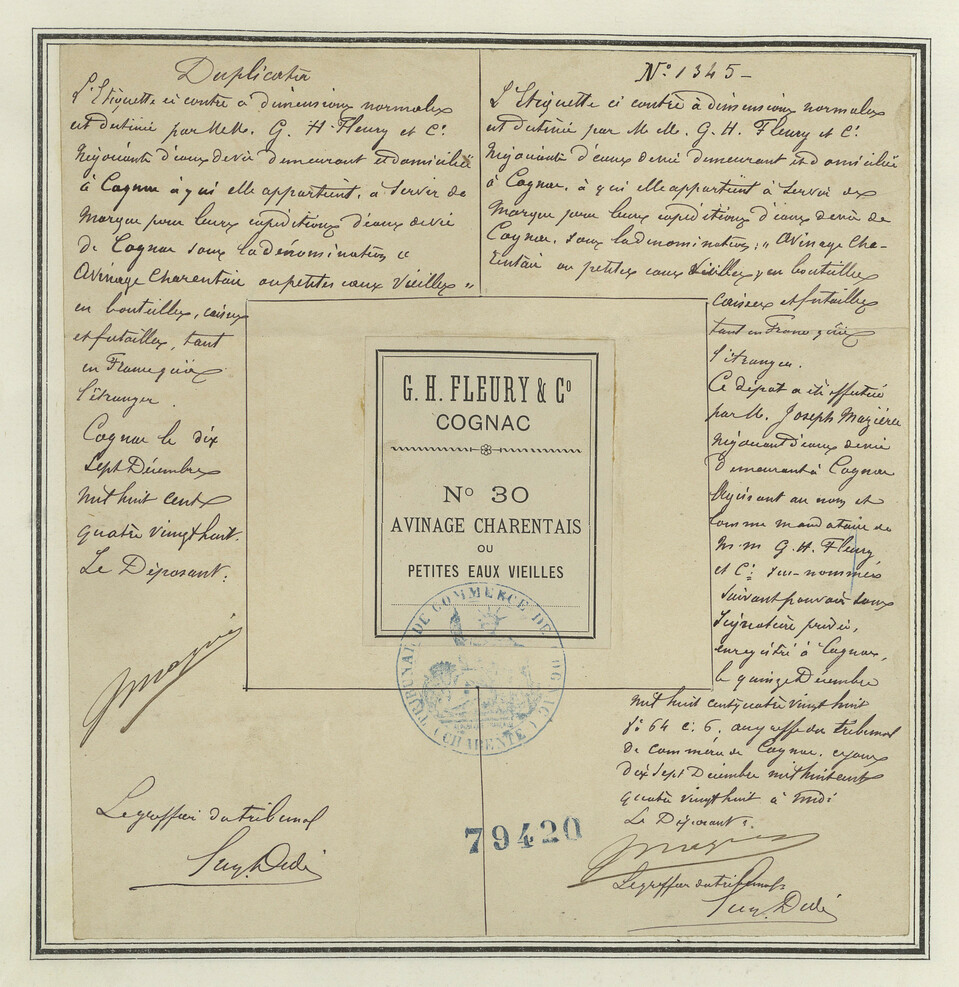 Duplicata
L'Etiquette ci contre à dimensions normales
est destinée par MM. G. H. Fleury et Cie
Négociants d'eaux de vie demeurant et domiciliés
à Cognac à qui elle appartient, à servir de
Marque pour leurs expéditions d'eaux de vie
de Cognac sous la dénomination "
Avinage Charentais ou petites eaux Vieilles "
en bouteilles, caisses
et futailles, tant
en France qu'à
l'étranger.
Cognac le dix
Sept Décembre
mil huit cent
quatre vingt huit.
Le Déposant:
Le greffier du tribunal
N° 1345 -
L'Etiquette ci contre à dimensions normales
est destinée par MM. G. H. Fleury et Cie
Négociants d'eaux de vie demeurant et domiciliés
à Cognac, à qui elle appartient à servir de
Marque pour leurs expéditions d'eaux de vie de
Cognac, sous la dénomination: " Avinage Cha-
rentais ou petites eaux Vieilles, en bouteilles
caisses et futailles
tant en France qu'à
l'étranger.
Ce dépôt a été effectué
par M. Joseph Mazière
négociant d'eaux de vie
demeurant à Cognac
Agissant au nom et
comme mandataire de
M.M G. H. Fleury
et Cie sus-nommés
suivant pouvoir sous
signature privée,
enregistré à Cognac,
le quinze Décembre
mil huit cent quatre vingt huit
f° 64 c. 6, au greffe du tribunal
de commerce de Cognac, ce jour
dix sept Décembre mil huit cent
quatre vingt huit à midi
Le Déposant:
Le greffier du tribunal
G. H. FLEURY & Co
COGNAC
No 30
AVINAGE CHARENTAIS
OU
PETITES EAUX VIEILLES
TRIBUNAL DE COMMERCE DE COGNAC
(CHARENTE)
79420